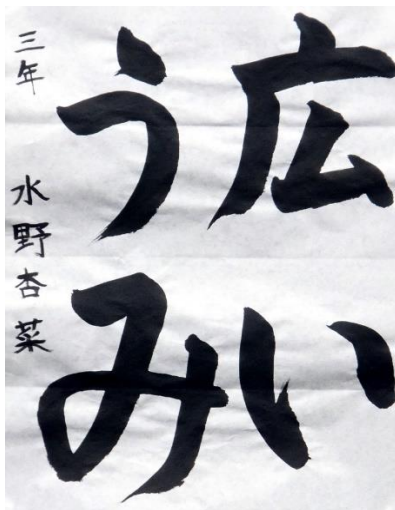 広い
うみ
三年 水野杏菜